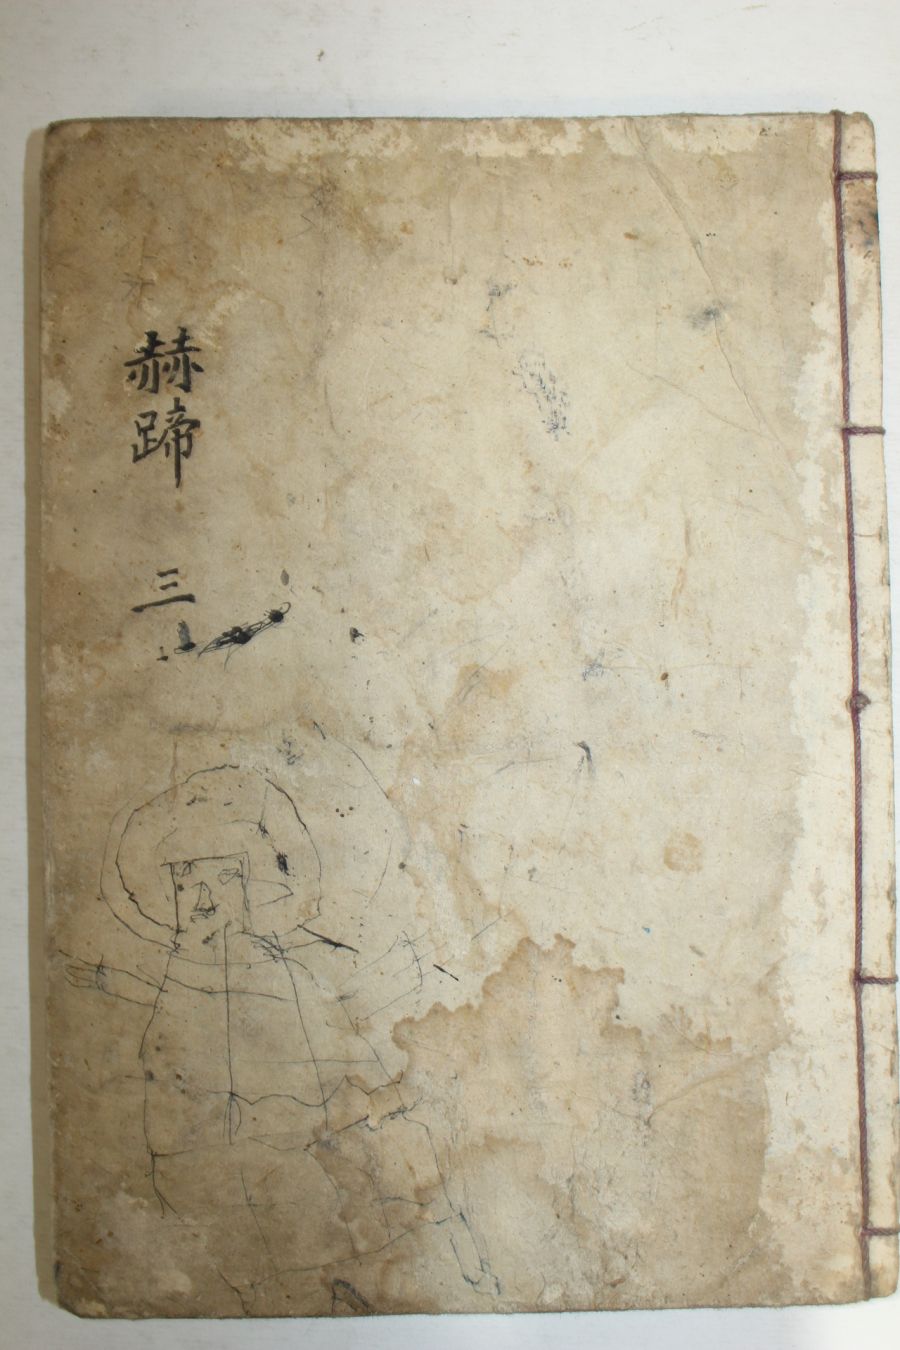 赫蹄 三